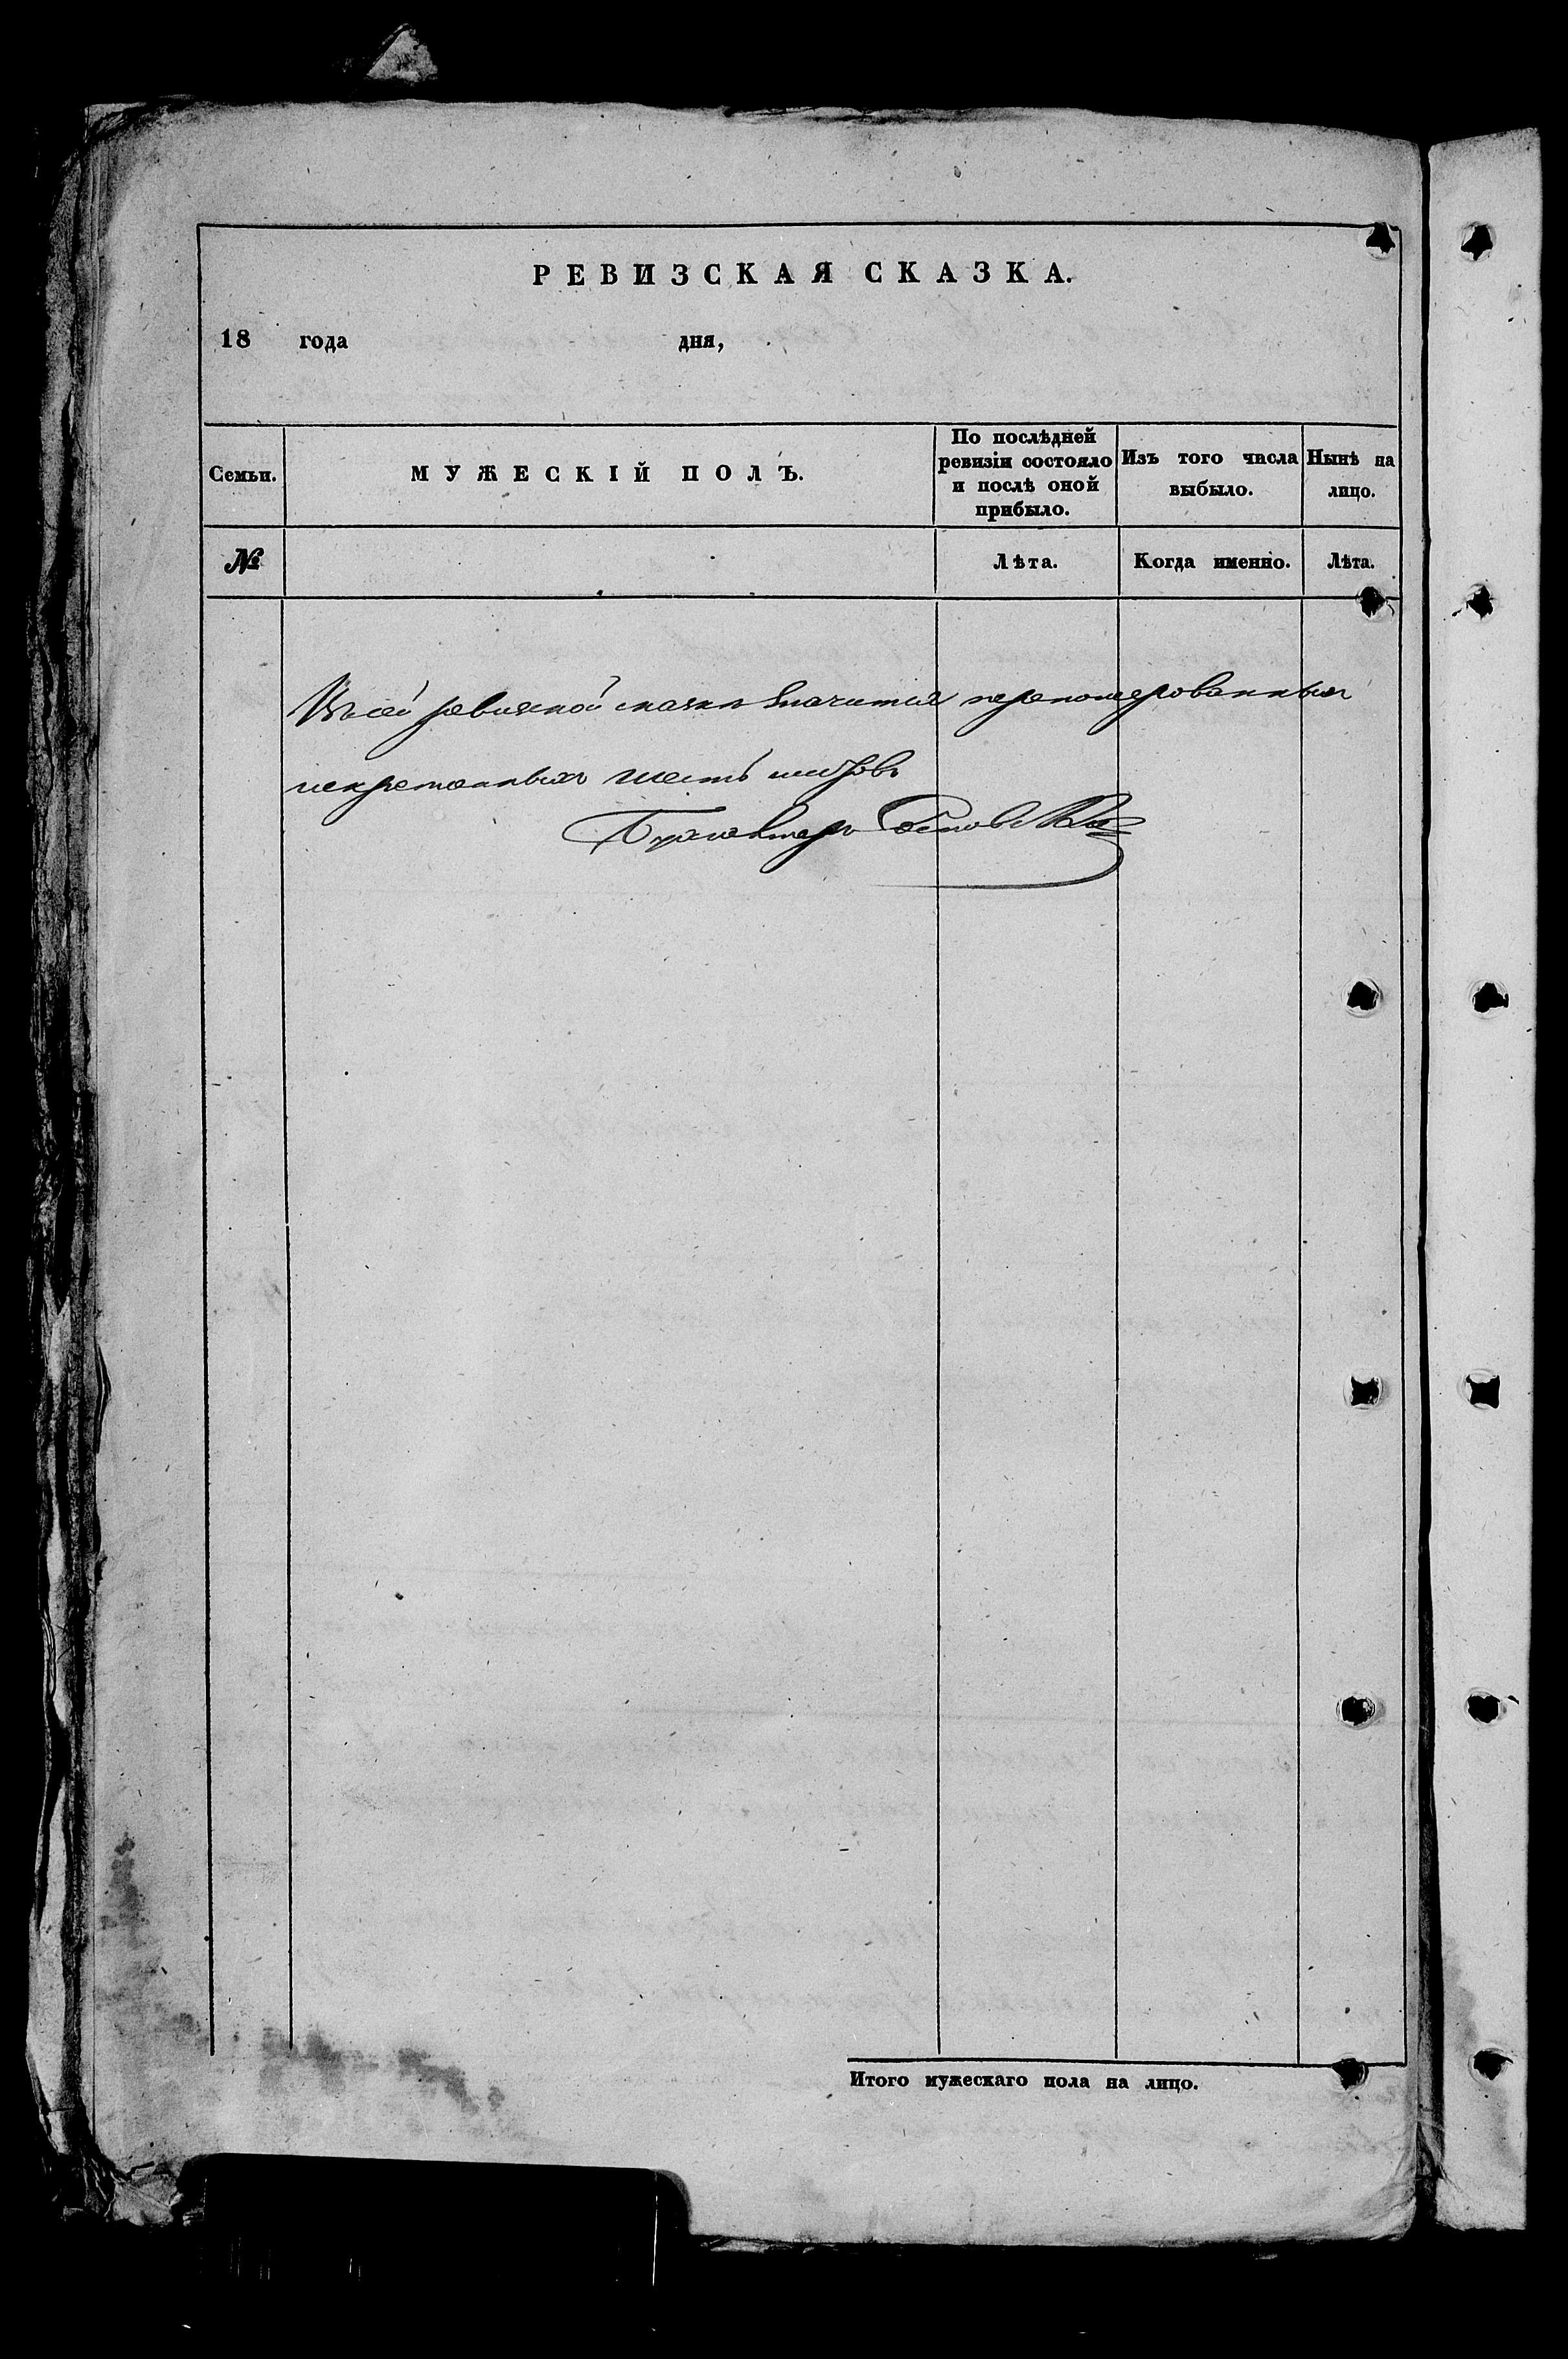 РЕВИЗСКАЯ СКАЗКА.
18 года дня,
Семьи.
МУЖЕСКІЙ ПОЛЪ.
По послѣдней
ревизіи состояло
и послѣ оной
прибыло.
Изъ того числа
выбыло.
Нынѣ на
лицо.
№
Лѣта.
Когда именно.
Лѣта.
Въ сей ревизкой сказки значится перономерованныхъ
искрепенныхъ шесть листовъ
Бухгалтеръ
Итого мужескаго пола на лицо.